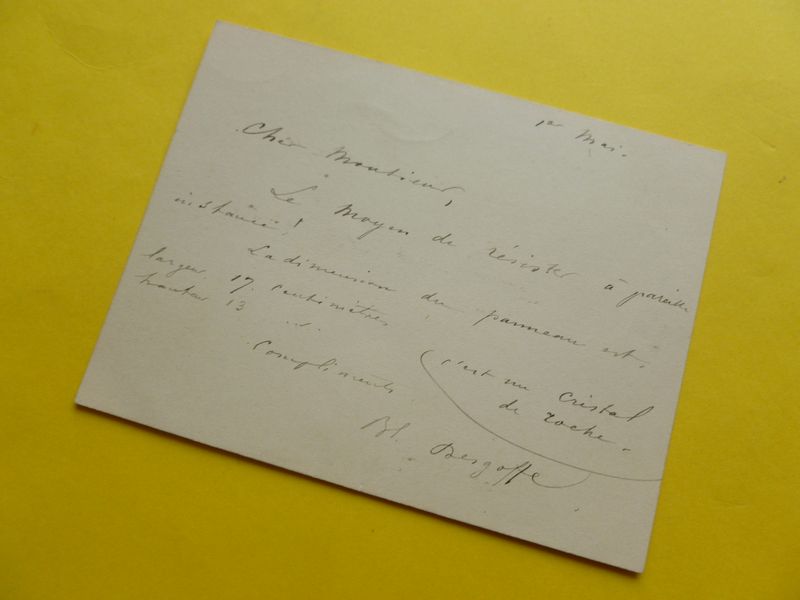 1er Mai.
Cher Monsieur,
Le moyen de résister à pareille
instance!
La dimension du panneau est,
largeur 17 centimètres
hauteur 13 "
c'est un cristal
de roche.
Compliments
Bl. Desgoffe